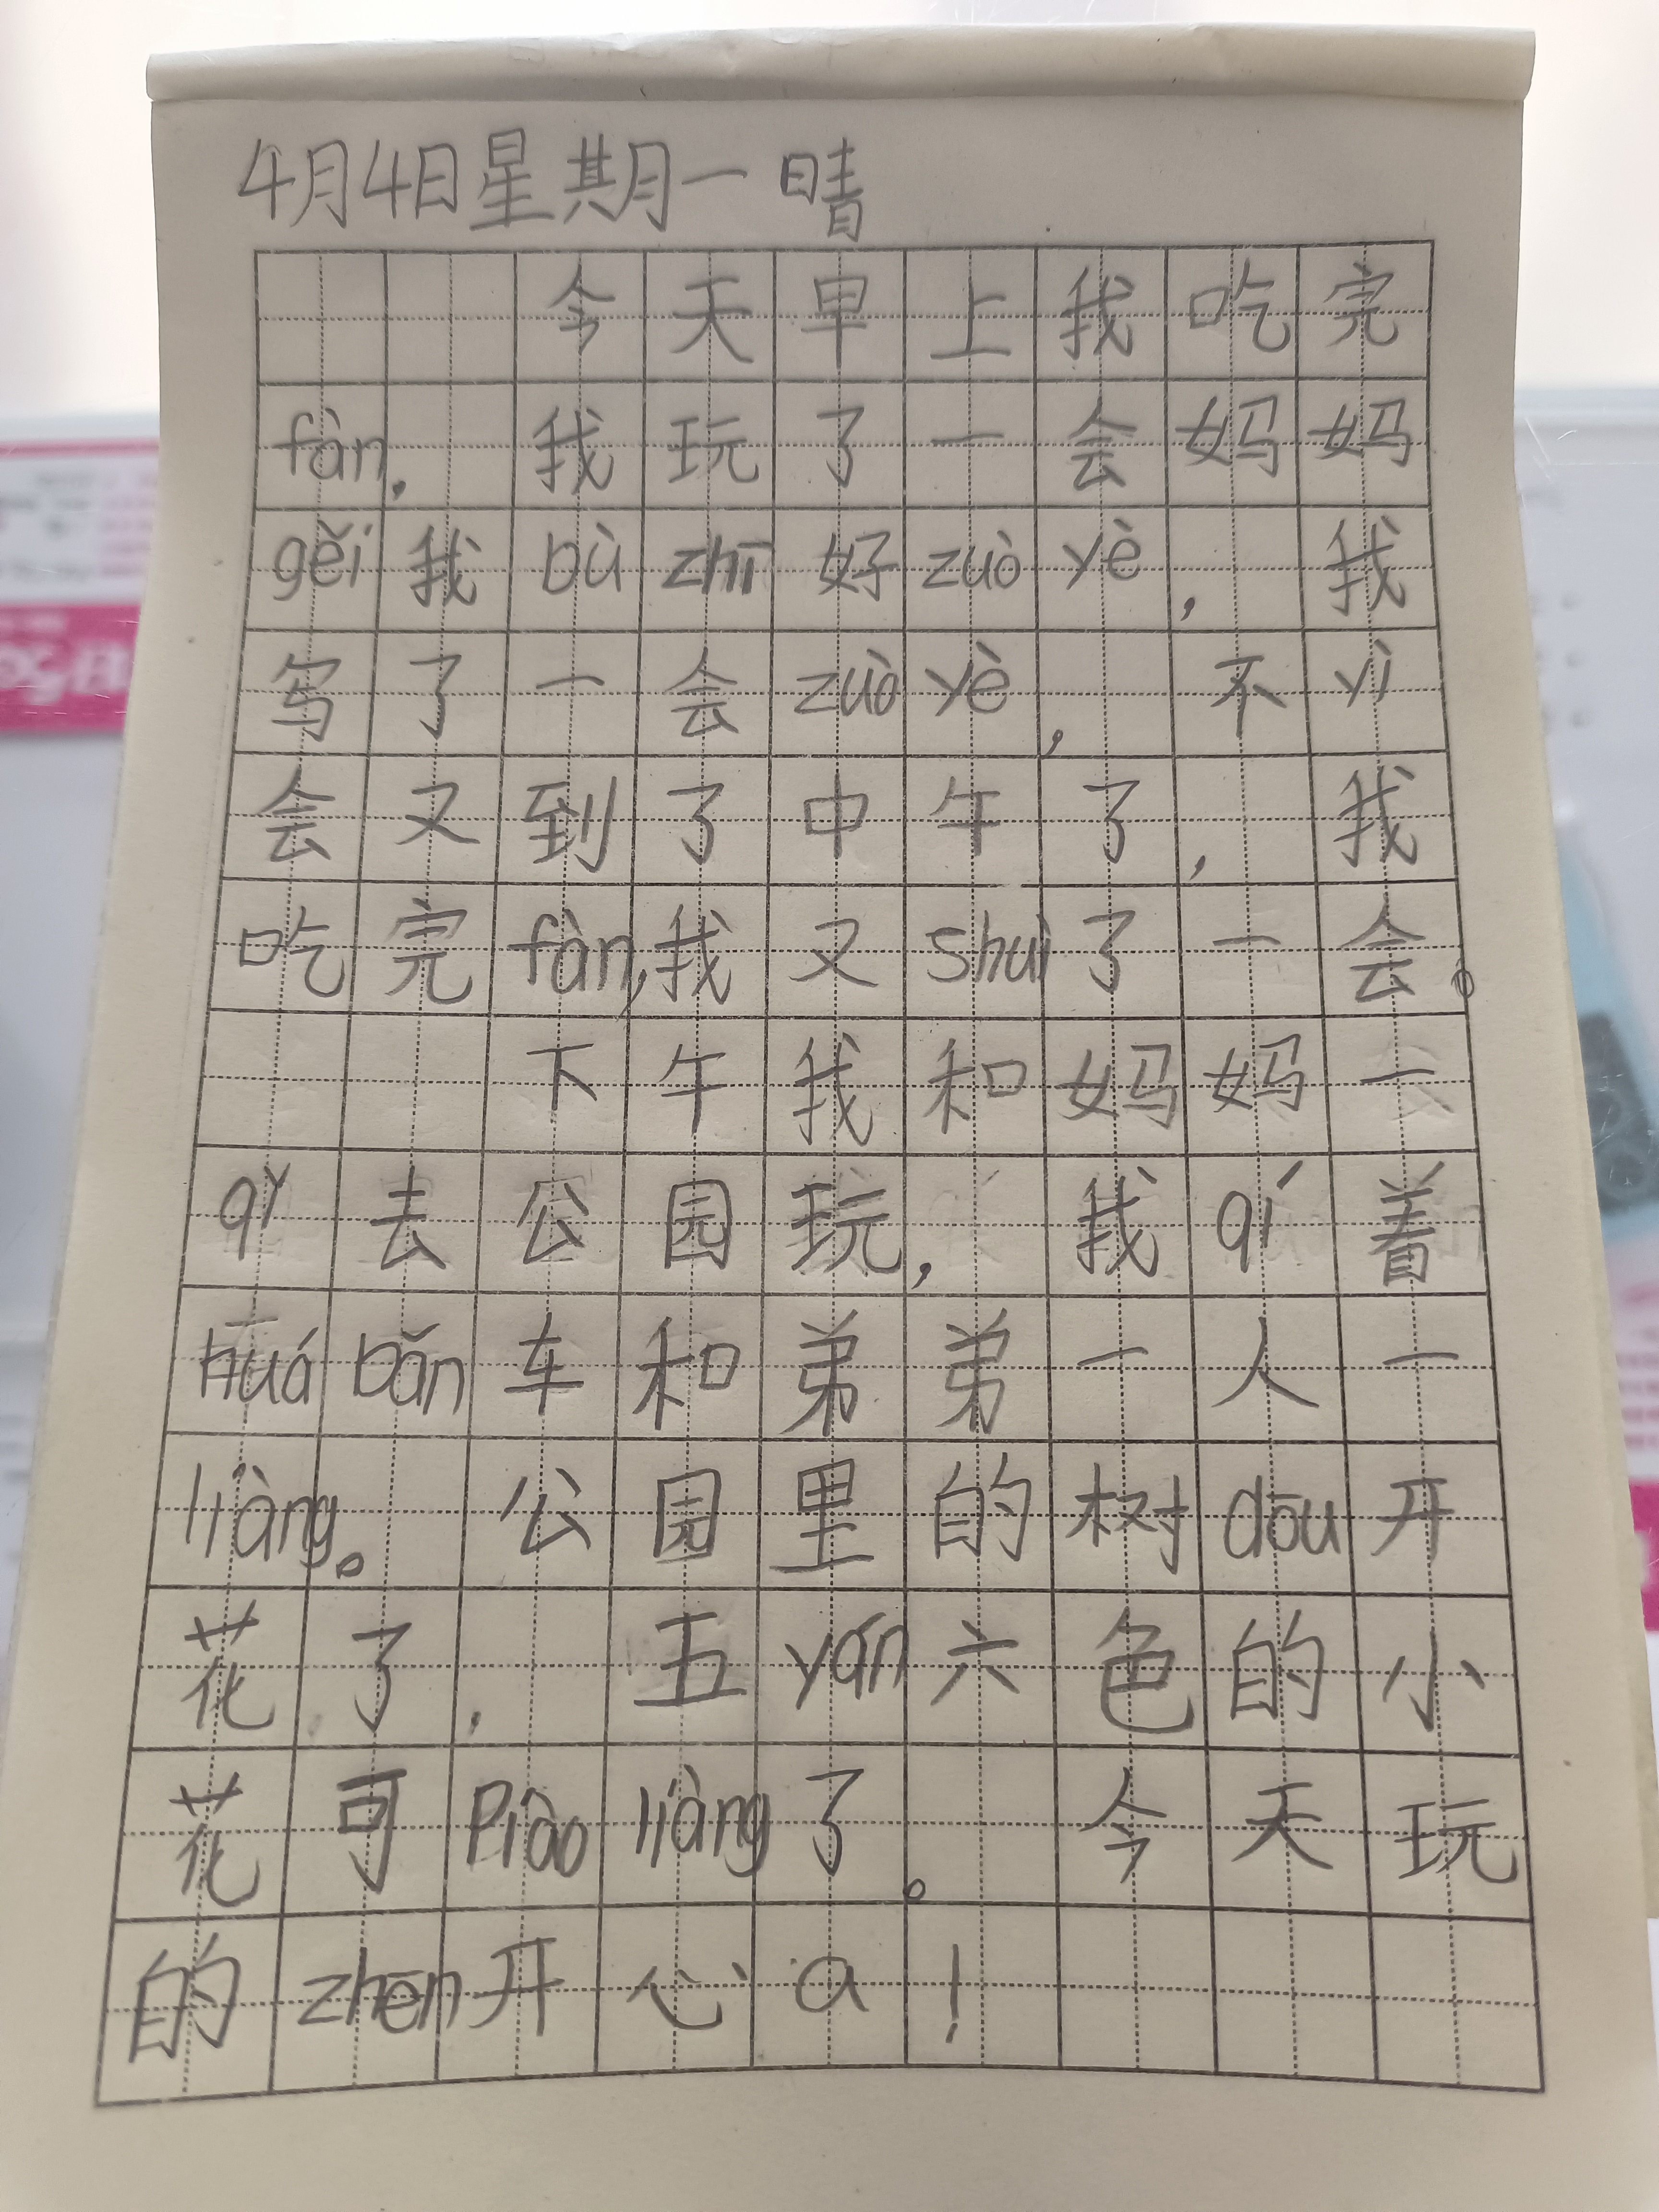 4月4日星期一 晴
今天早上我吃完
fàn，我玩了一会妈妈
gěi我bù zhī好zuò yè，我
写了一会zuò yè，不yì
会又到了中午了，我
吃完fàn，我又shuì了一会。
下午我和妈妈一
qǐ去公园玩，我qí着
huá bǎn车和弟弟一人一
liàng。公园里的树dōu开
花了，五yán六色的小
花可Piào liàng了。今天玩
的zhēn开心a！